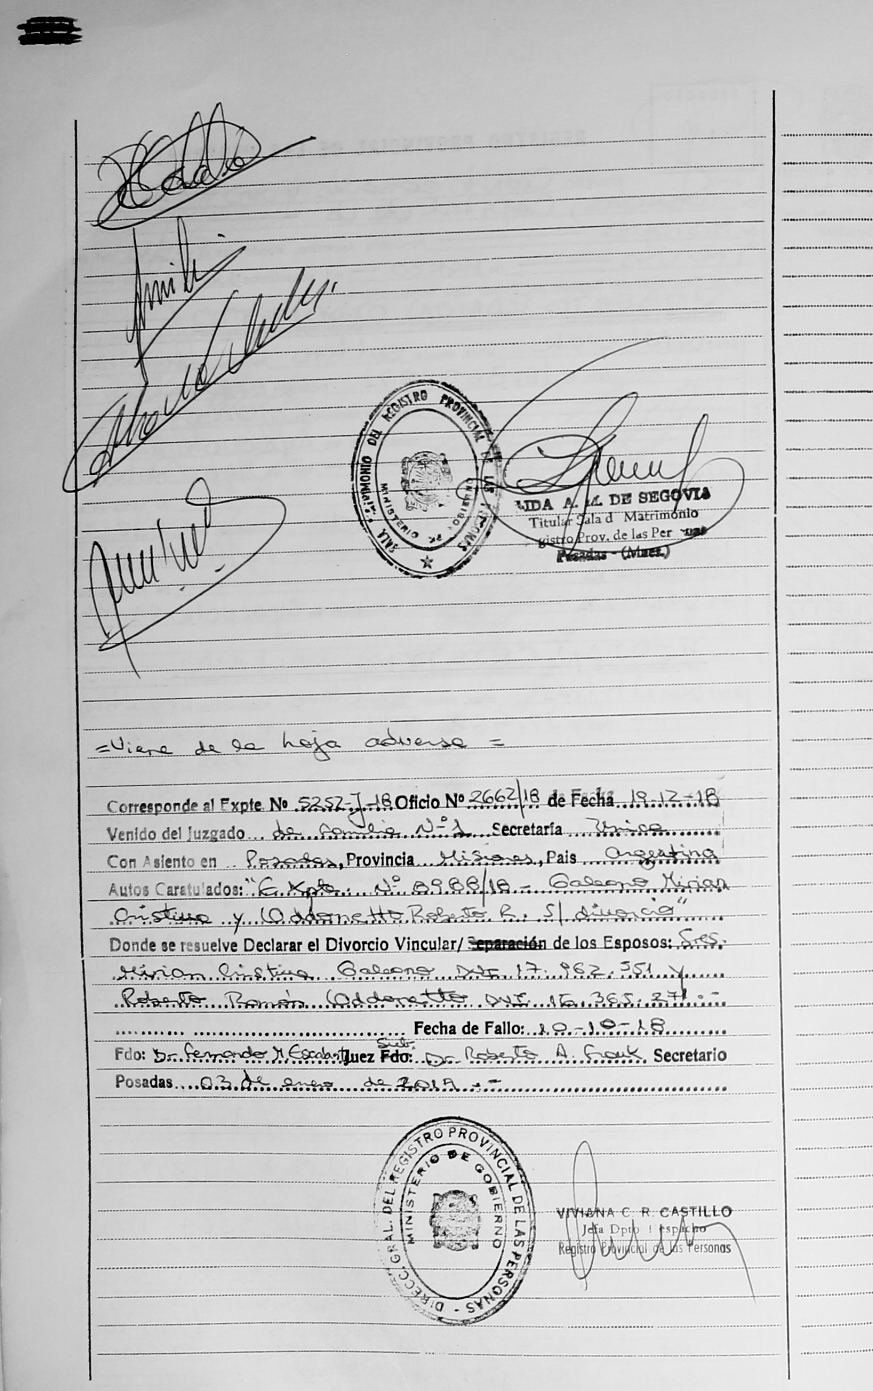 SALA MATRIMONIO DEL REGISTRO PROVINCIAL DE LAS PERSONAS
LIDA A. M. DE SEGOVIA
Titular Sala d Matrimonio
gistro Prov. de las Per nas
Posadas - (Mnes.)
=Viene de la hoja adversa=
Corresponde al Expte. No 5252-J-18 Oficio Nº 2662/18 de Fecha 19-12-18
Venido del Juzgado de familia Nº1 Secretaría Unica
Con Asiento en Posadas, Provincia Misiones, Pais Argentina
Autos Caratulados: "Expte. Nº 8988/18 - Galeano Mirian
Cristina y Oddonetto Roberto R. S/ divorcio"
Donde se resuelve Declarar el Divorcio Vincular/ Separación de los Esposos: Sres.
Mirian Cristina Galeano DNI 17.962.351 y
Roberto Ramón Oddonetto DNI 16.365.271.-
Fecha de Fallo: 10-10-18
Fdo: Dr. Fernando M. Juez Sub. Fdo: Dr. Roberto A. Secretario
Posadas 03 de enero de 2019.-
DIRECC. GRAL. DEL REGISTRO PROVINCIAL DE LAS PERSONAS
MINISTERIO DE GOBIERNO
VIVIANA C. R. CASTILLO
Jefa Dpto espacho
Registro Provincial de las Personas